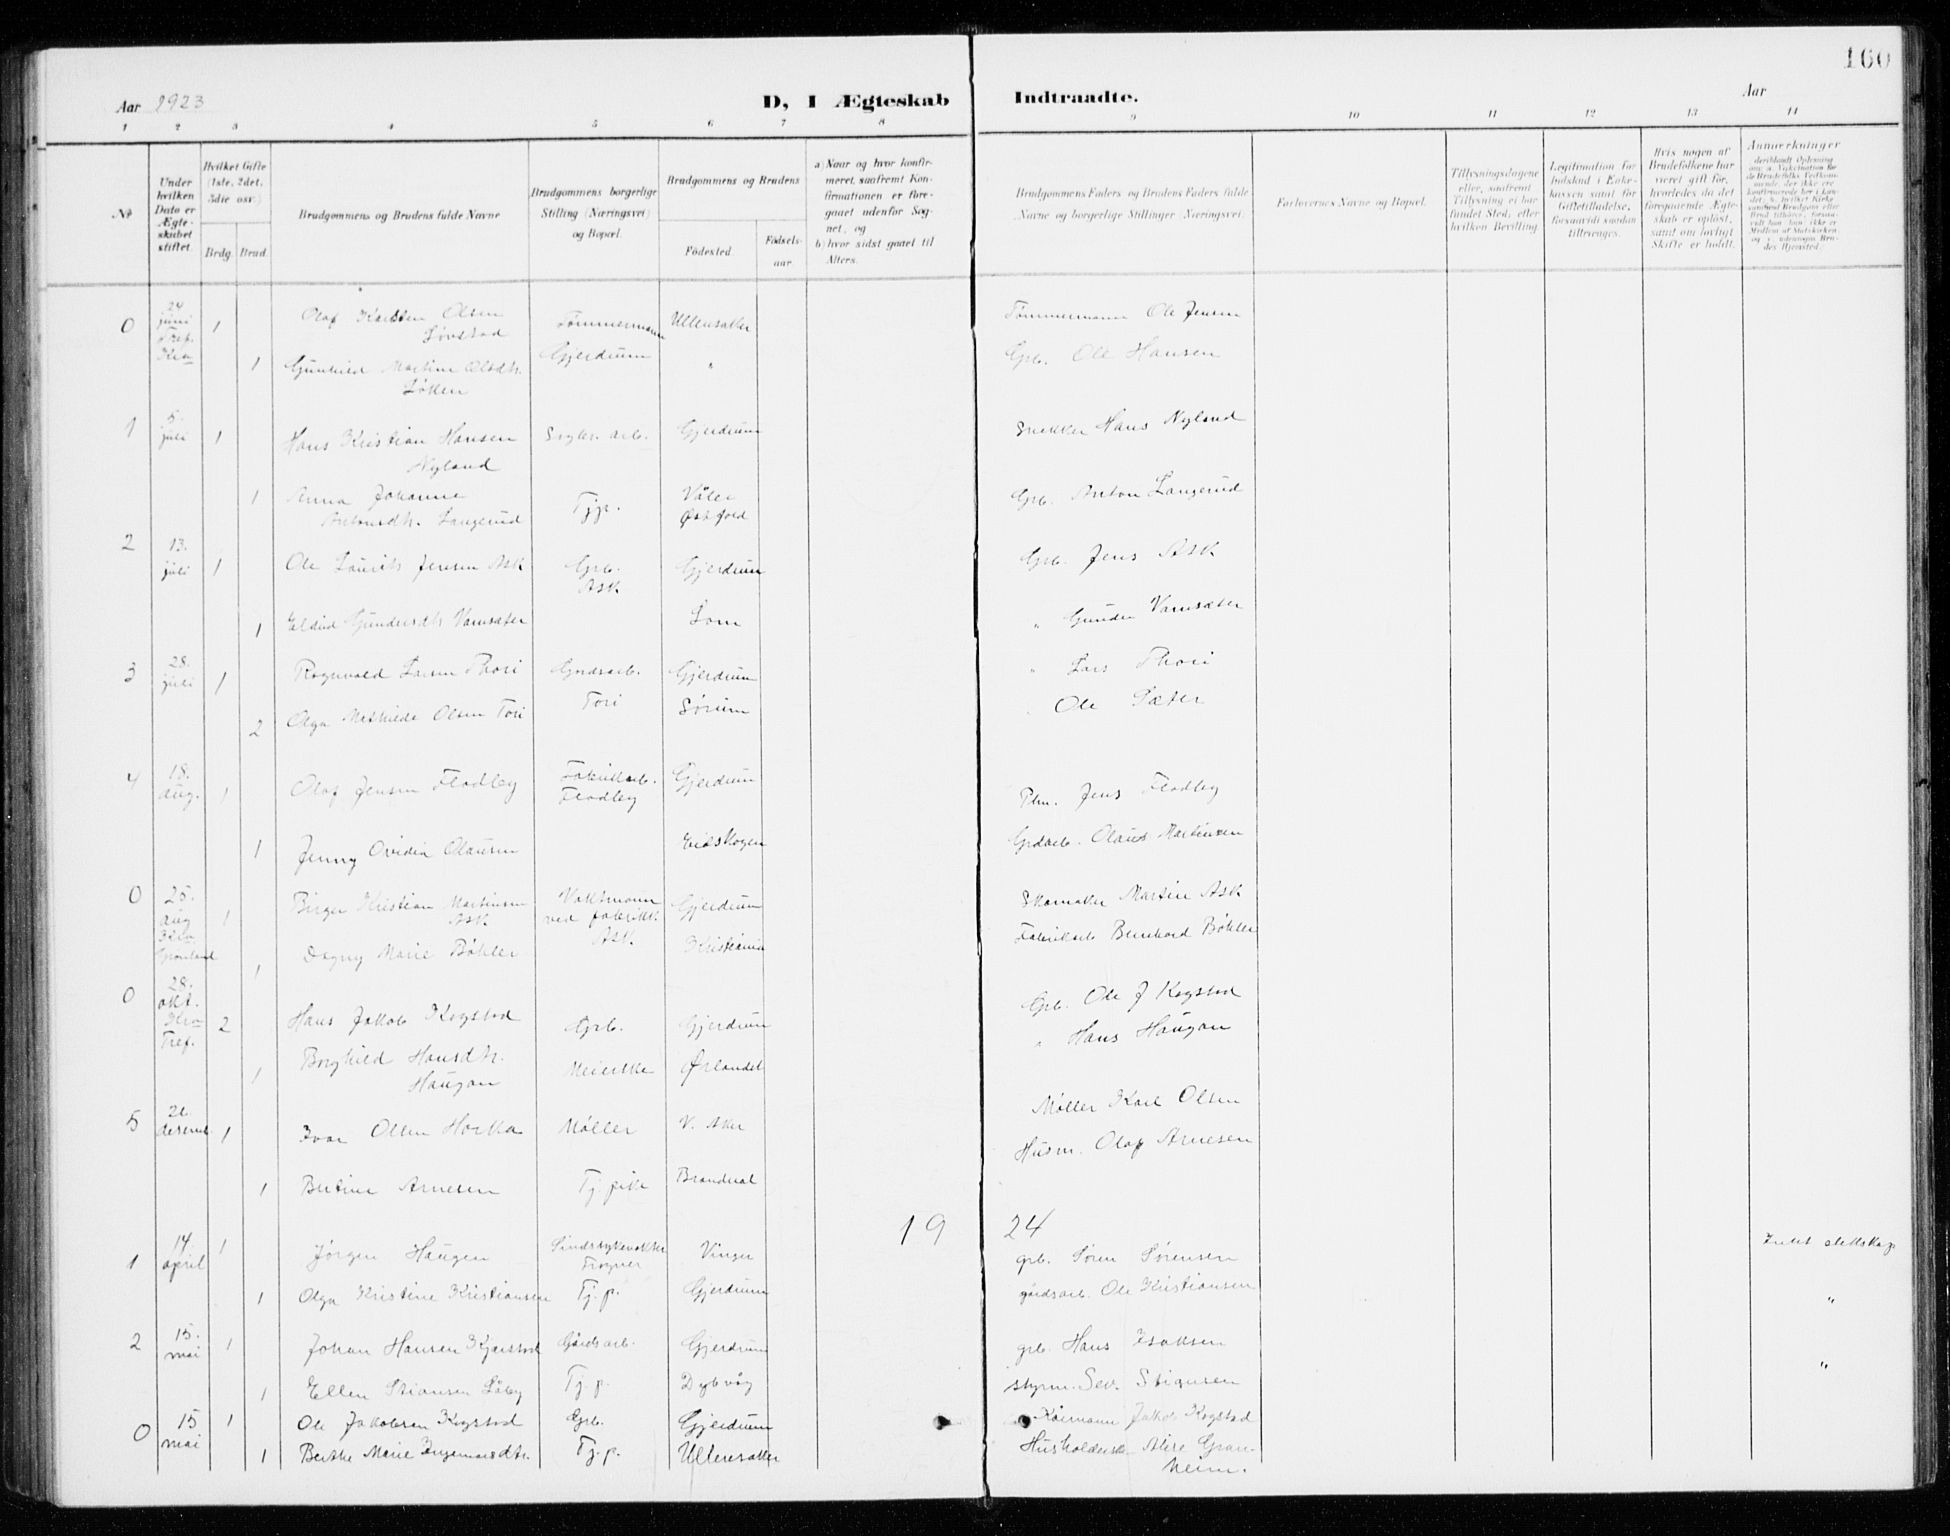 160
Aar 1923
D, I Ægteskab Indtraadte.
Aar
1 2 3 4 5 6 7 8 9 10 11 12 13 14
No.
Under hvilken Dato er Ægteskabet stiftet.
Hvilket Gifte (1ste, 2det, 3die osv.)
Brdg. Brud.
Brudgommens og Brudens fulde Navne
Brudgommens borgerlige Stilling (Næringsvei) og Bopæl.
Brudgommens og Brudens
Fødested. Fødselsaar.
a) Naar og hvor konfirmeret, saafremt Konfirmationen er foregaaet udenfor Sognet, og
b) hvor sidst gaaet til Alters.
Brudgommens Faders og Brudens Faders fulde Navne og borgerlige Stillinger (Næringsvei).
Forlovernes Navne og Bopæl.
Tillysningsdagene eller, saafremt Tillysning ei har fundet Sted, efter hvilken Bevilling.
Legitimation for Indskud i Enkekassen samt for Giftetilladelse, forsaavidt saadan tiltrænges.
Hvis nogen af Brudefolkene har været gift før, hvorledes da det foregaaende Ægteskab er opløst, samt om lovligt Skifte er holdt.
Anmærkninger
0 24 juni Tref. Kra 1 Olaf Karsten Olsen Løvstad Tømmermann Ullensaker Tømmermann Ole Jensen
1 Gunhild Martine Olsdtr. Løken Gjerdrum " Grb. Ole Hansen
1 5. juli 1 Hans Kristian Hansen Nyland Sagbr. arb. Gjerdrum Snekker Hans Nyland
1 Anna Johanne Antonsdtr. Langerud Tjp. Våler Østfold Grb. Anton Langerud
2 13. juli 1 Ole Laurits Jensen Ask Grb. Ask Gjerdrum Grb. Jens Ask
1 Gundersdtr Lom " Gunder
3 28. juli 1 Ragnvald Larsen Thori Gardsarb. Tori Gjerdrum " Lars Thori
2 Olga Mathilde Olsen Tori Sørum " Ole Sæter
4 18. aug. 1 Olaf Jensen Flodby Fabrikarb. Flodby Gjerdrum Plm. Jens Flodby
1 Jenny Ovidia Olausen Eidskogen Grdarb. Olaus Martinsen
0 25. aug Kra. Grønland 1 Birger Kristian Martinsen Ask Vaktmann ved fabrikk Ask Gjerdrum Skomaker Martin Ask
1 Dagny Marie Bøhler Kristiania Fabrikarb Bernhard Bøhler
0 28. okt. Kra Tref. 2 Hans Jakob Kogstad Grb. Gjerdrum Grb. Ole J Kogstad
1 Borghild Hansdtr. Haugan Meierske Ørlandet " Hans Haugan
5 21 desemb. 1 Ivar Olsen Møller V. Aker Møller Karl Olsen
1 Bertine Arnesen Tj. pike Brandval Husm. Olaf Arnesen
1924
1 14 april 1 Jørgen Haugen Sindssykevokter Frogner Vinger grb. Søren Sørensen Intet slektskap
1 Olga Kristine Kristiansen Tj. p. Gjerdrum gårdsarb. Ole Kristiansen "
2 15. mai 1 Johan Hansen Kjærstad Gårdsarb. Gjerdrum grb. Hans Isaksen
1 Ellen Stiansen Tj. p. Dybvåg styrm. Sev. Stiansen "
0 15 mai 1 Ole Jakobsen Kogstad Grb. Gjerdrum Kårmann Jakob Kogstad
1 Berthe Marie Ingemarsdtr. Tj. p. Ullensaker Husholderske Granheim.